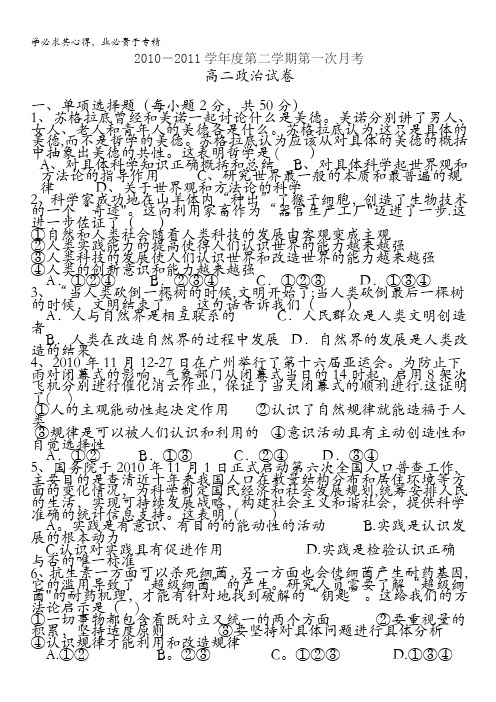 学必求其心得，业必贵于专精
2010－2011学年度第二学期第一次月考
高二政治试卷
一、单项选择题（每小题2分，共50分）
1、苏格拉底曾经和美诺一起讨论什么是美德。美诺分别讲了男人、
女人、老人和青年人的美德各是什么。苏格拉底认为,这只是具体的
美德,而不是哲学的美德。苏格拉底认为应该从对具体的美德的概括
中抽象出美德的共性。这表明哲学是( )
A、对具体科学知识正确概括和总结 B、对具体科学起世界观和
方法论的指导作用 C、研究世界最一般的本质和最普遍的规
律 D、关于世界观和方法论的科学
2，科学家成功地在山羊体内“种出”了猴子细胞，创造了生物技术
的一个“奇迹”。这向利用家畜作为“器官生产工厂"迈进了一步.这
进一步佐证了( )
①自然和人类社会随着人类科技的发展由客观变成主观
②人类实践能力的提高使得人们认识世界的能力越来越强
③人类科技的发展使人们认识世界和改造世界的能力越来越强
④人类的创新意识和能力越来越强
A．①②④ B．②③④ C．①②③ D．①③④
3、“当人类砍倒一棵树的时候,文明开始了;当人类砍倒最后一棵树
的时候，文明结束了”，这句话告诉我们（ ）
A．人与自然界是相互联系的 C．人民群众是人类文明创造
者
B．人类在改造自然界的过程中发展 D．自然界的发展是人类改
造的结果
4、2010年11月12-27日在广州举行了第十六届亚运会。为防止下
雨对闭幕式的影响，气象部门从闭幕式当日的14时起，启用8架次
飞机分别进行催化消云作业，保证了当天闭幕式的顺利进行.这证明
了( )
①人的主观能动性起决定作用 ②认识了自然规律就能造福于人
类
③规律是可以被人们认识和利用的 ④意识活动具有主动创造性和
自觉选择性
A．①② B．①③ C．②④ D．③④
5、国务院于2010年11月1日正式启动第六次全国人口普查工作，
主要目的是查清近十年来我国人口在数量结构分布和居住环境等方
面的变化情况，为科学制定国民经济和社会发展规划,统筹安排人民
的生活，实现可持续发展战略，构建社会主义和谐社会，提供科学
准确的统计信息支持。这表明,( )
A。实践是有意识、有目的的能动性的活动 B.实践是认识发
展的根本动力
C.认识对实践具有促进作用 D.实践是检验认识正确
与否的唯一标准
6、抗生素一方面可以杀死细菌，另一方面也会使细菌产生耐药基因,
它的滥用导致了“超级细菌”的产生。研究人员需要了解“超级细
菌"的耐药机理，才能有针对地找到破解的“钥匙”。这给我们的方
法论启示是( )
①一切事物都包含着既对立又统一的两个方面 ②要重视量的
积累，坚持适度原则 ③要坚持对具体问题进行具体分析
④认识规律才能利用和改造规律
A.①② B。②③ C。①②③ D.①③④